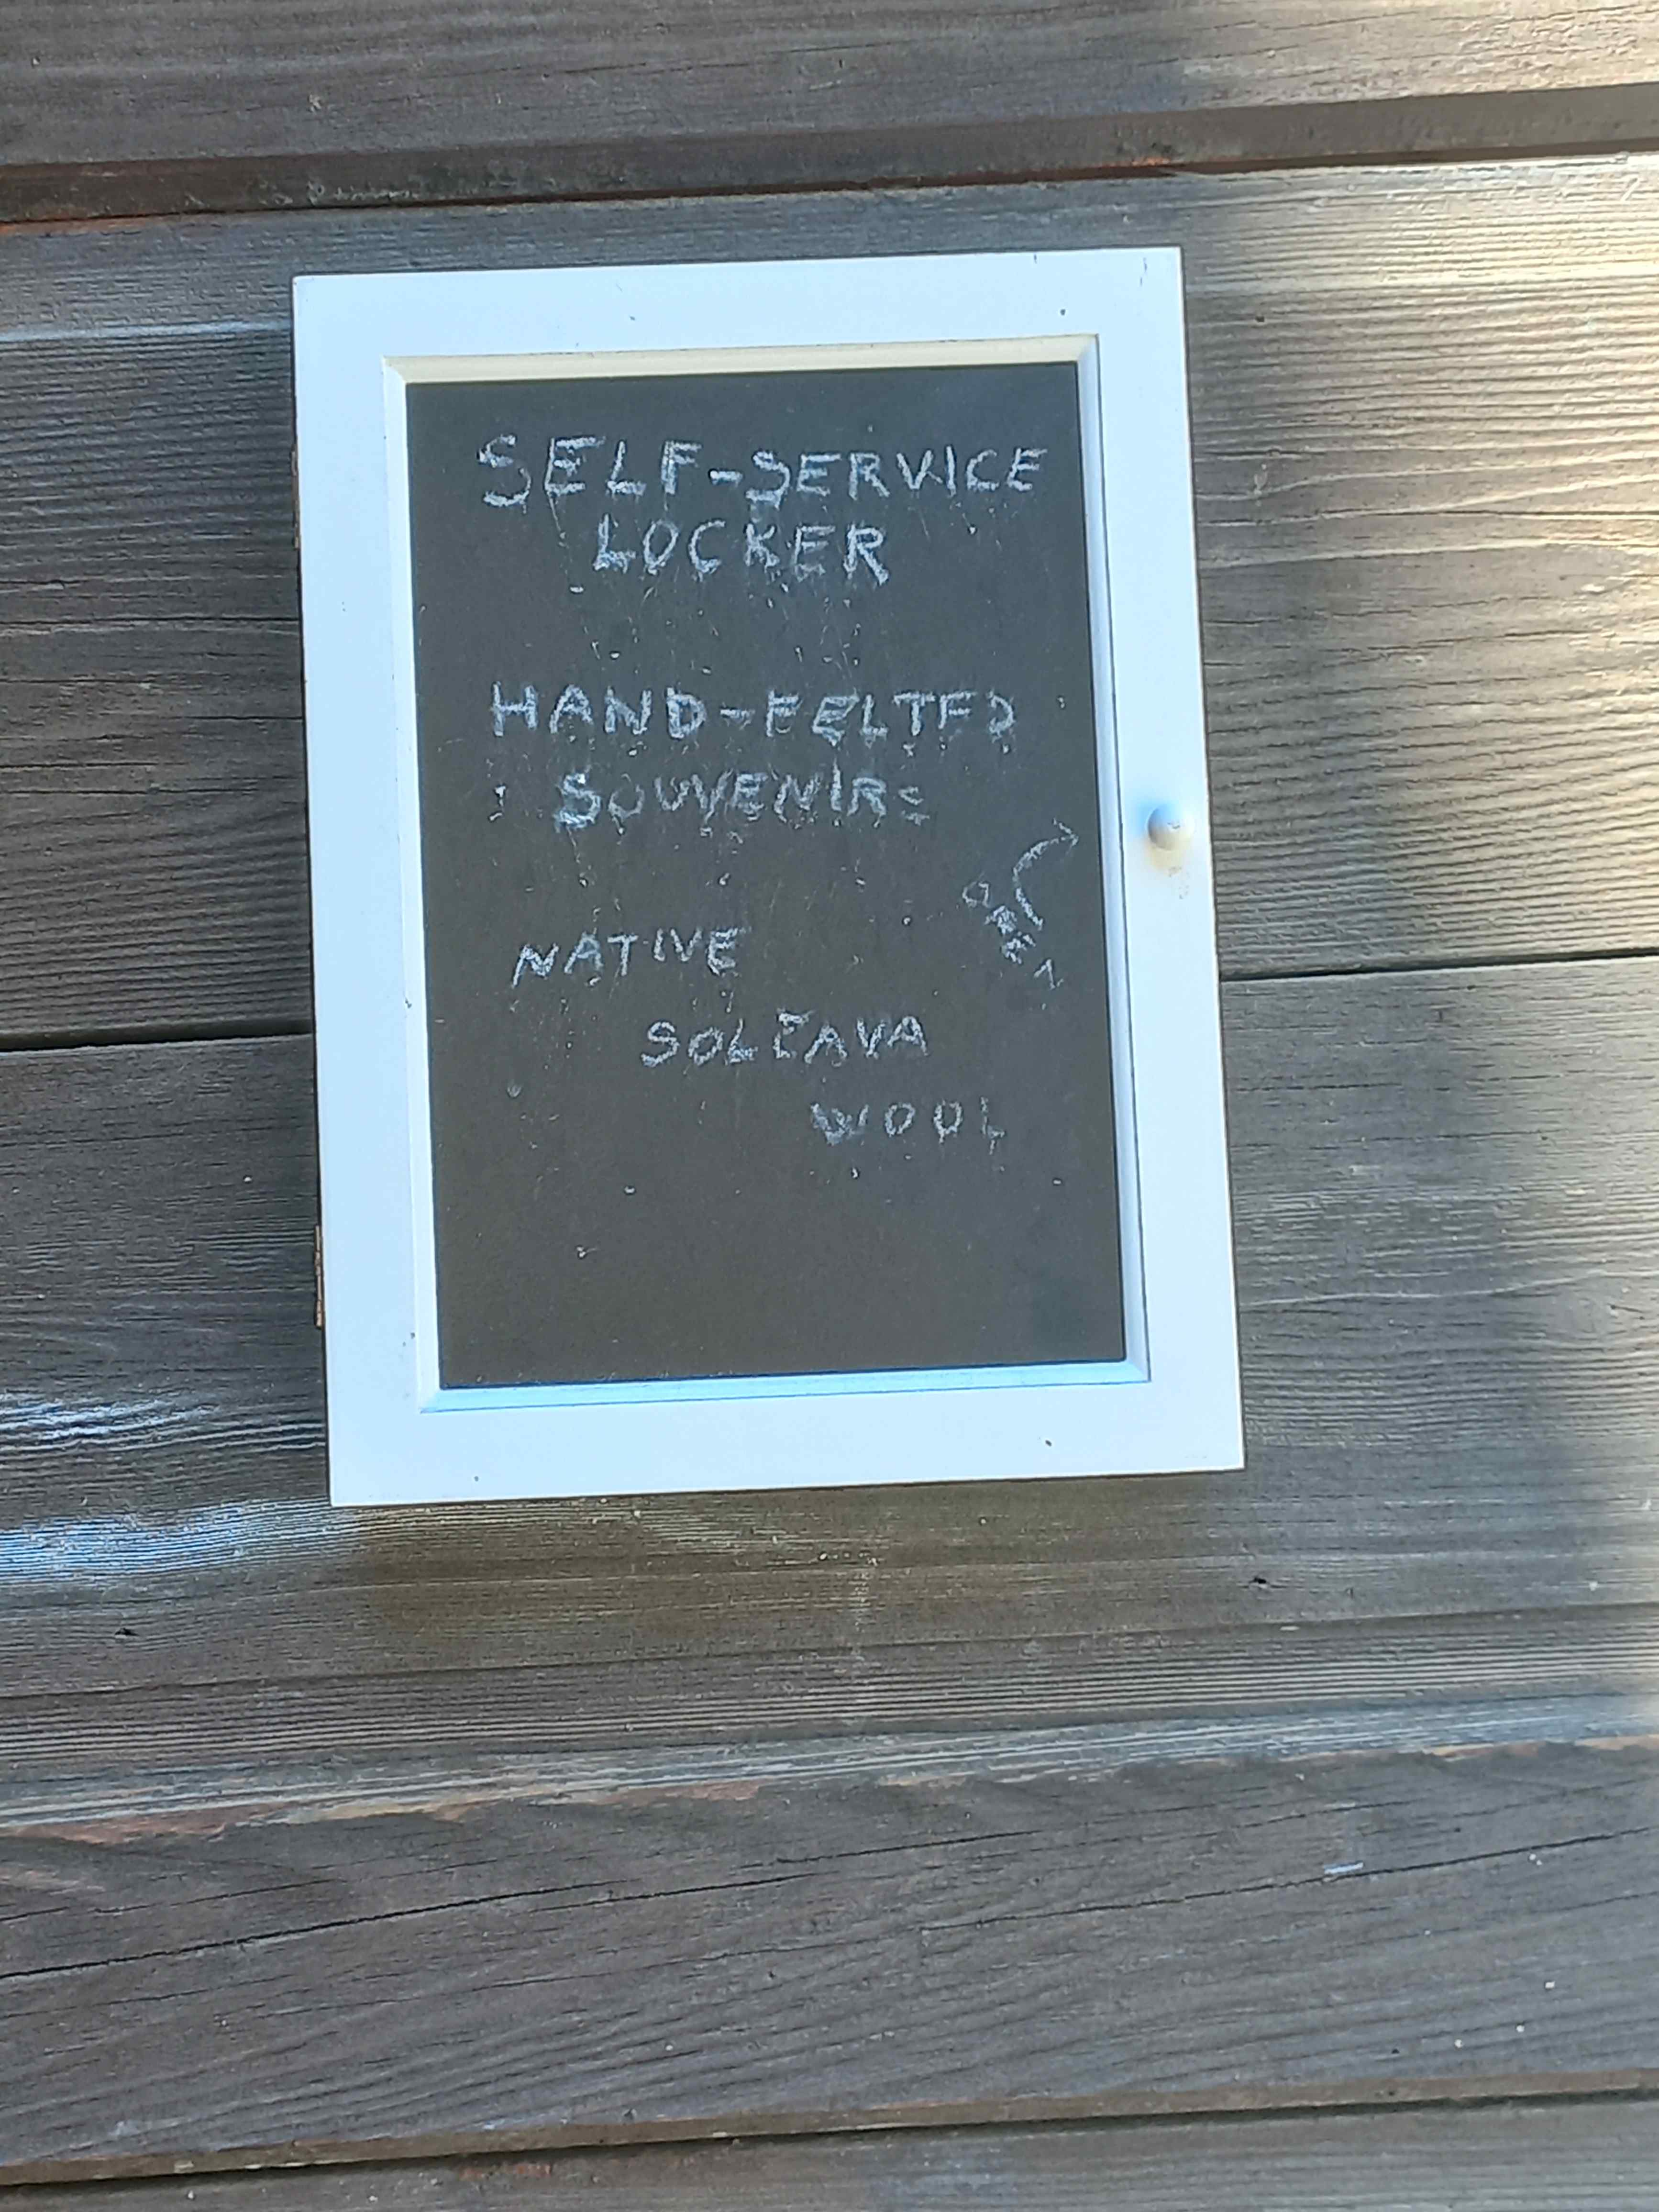 SELF-SERVICE
LOCKER
HAND-FELTED
SOUVENIRS
OPEN
NATIVE
SOLČAVA
WOOL